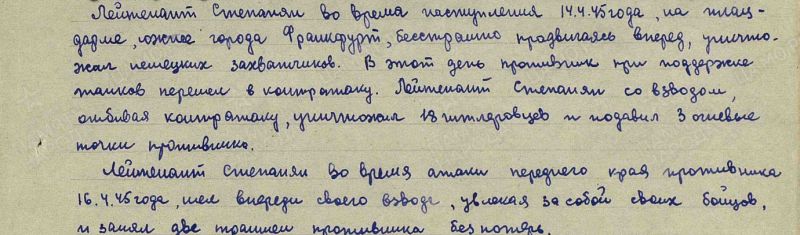 Лейтенант Степанян во время наступления 14.4.45 года, на плац-
дарме, южнее города Франкфурт, бесстрашно продвигаясь вперед, уничто-
жал немецких захватчиков. В этот день противник при поддержке
танков перешел в контратаку. Лейтенант Степанян со взводом,
отбивая контратаку, уничтожил 18 гитлеровцев и подавил 3 огневые
точки противника.
Лейтенант Степанян во время атаки переднего края противника
16.4.45 года, шел впереди своего взвода, увлекая за собой своих бойцов,
и занял две траншеи противника без потерь.